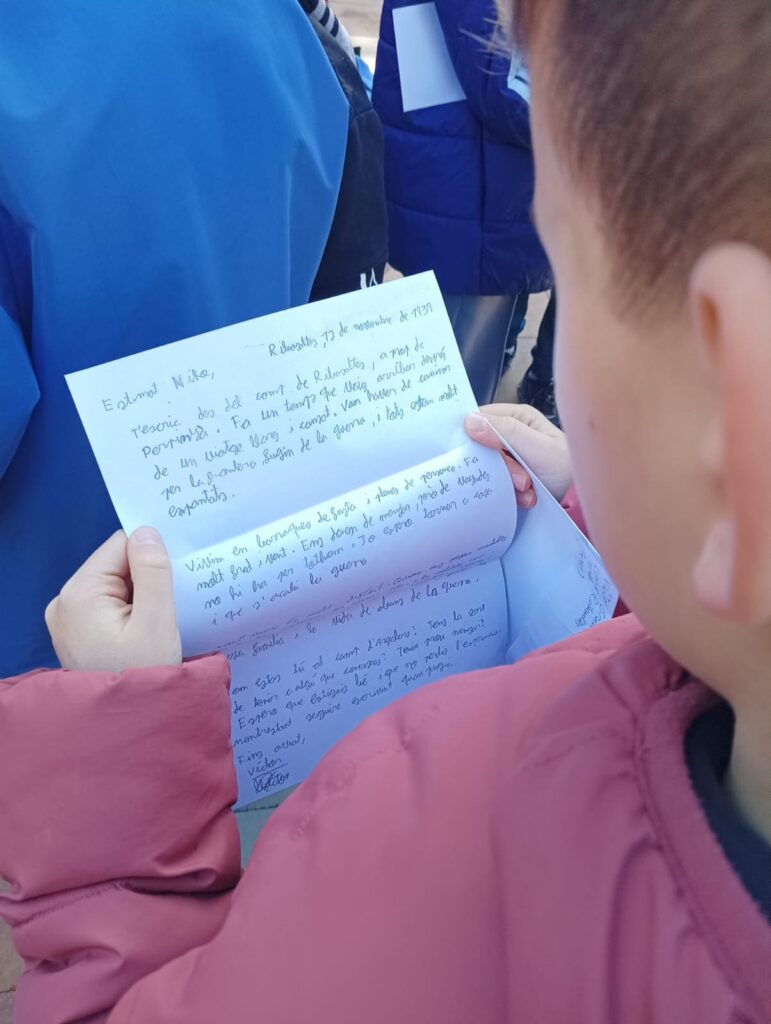 Ribesaltes, 12 de novembre de 1939
Estimat Mike,
T'escric des del camp de Ribesaltes, a prop de
Perpinyà. Fa un temps que vaig arribar després
de un viatge llarg i cansat. Vam haver de caminar
per la frontera, fugim de la guerra, i tots estem molt
espantats.
Vivim en barraques de fusta i plenes de persones. Fa
molt fred i vent. Ens donen de menjar, però de vegades
no hi ha per tothom. Jo espero tornar a casa
i que s'acabi la guerra
família i la vida de abans de la guerra.
om estas tú al camp d'Argelers? Tens la sort
de tenir a algú que coneixes? Teniu prou menjar?
Espero que estiguis bé i que no perdis l'esperança.
mentrestant seguiré escrivint quan pugui.
Fins aviat,
Víctor